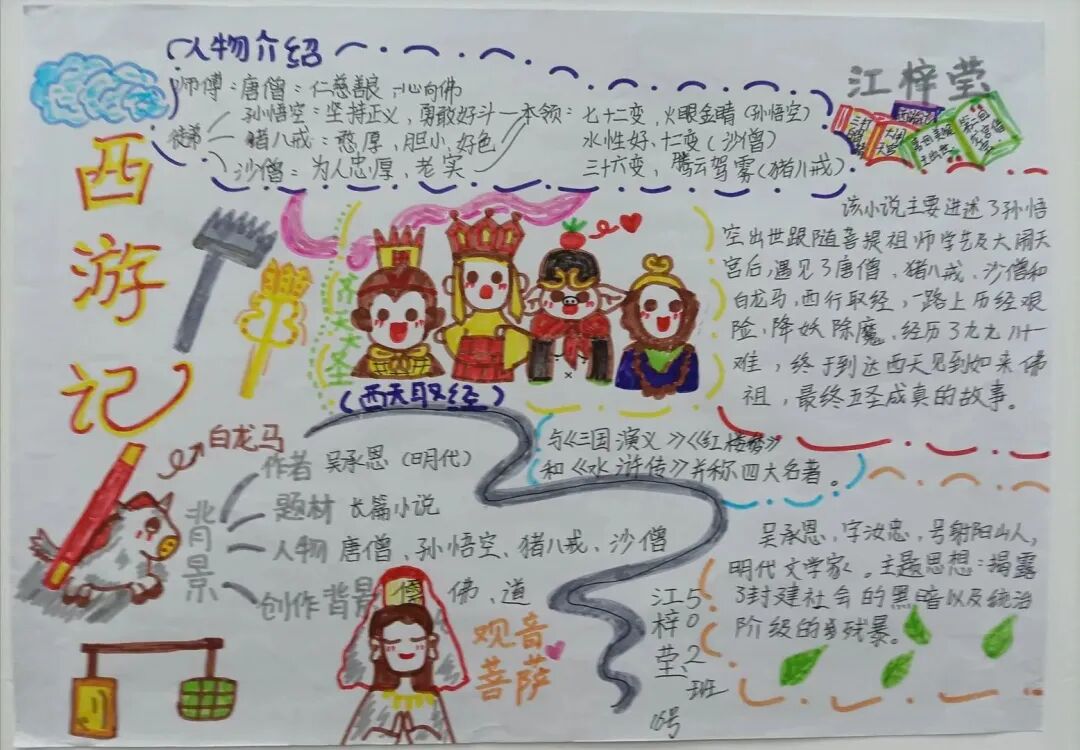 人物介绍
师傅：唐僧：仁慈善良，心向佛
孙悟空：坚持正义，勇敢好斗
徒弟
猪八戒：憨厚，胆小，好色
沙僧：为人忠厚，老实
本领：七十二变，火眼金睛（孙悟空）
水性好、七变（沙僧）
三十六变，腾云驾雾（猪八戒）
江梓莹
西游记
齐天大圣
（西天取经）
该小说主要进述了孙悟
空出世跟随菩提祖师学艺及大闹天
宫后，遇见了唐僧、猪八戒、沙僧和
白龙马，西行取经，一路上历经艰
险、降妖除魔、经历了九九八十一
难，终于到达西天见到如来佛
祖，最终五圣成真的故事。
白龙马
与《三国演义》《红楼梦》
和《水浒传》并称四大名著。
背景
作者 吴承恩（明代）
题材 长篇小说
人物 唐僧、孙悟空、猪八戒、沙僧
创作背景 儒、佛、道
观音
菩萨
吴承恩，字汝忠，号射阳山人，
明代文学家。主题思想：揭露
了封建社会的黑暗以及统治
阶级的残暴。
江梓莹
502班
16号